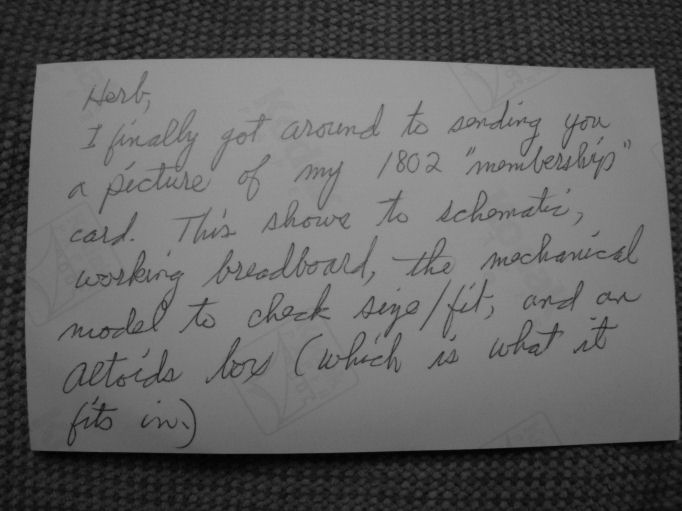 Herb,
I finally got around to sending you
a picture of my 1802 "membership"
card. This shows to schematic,
working breadboard, the mechanical
model to check size/fit, and an
Altoids box (which is what it
fits in.)